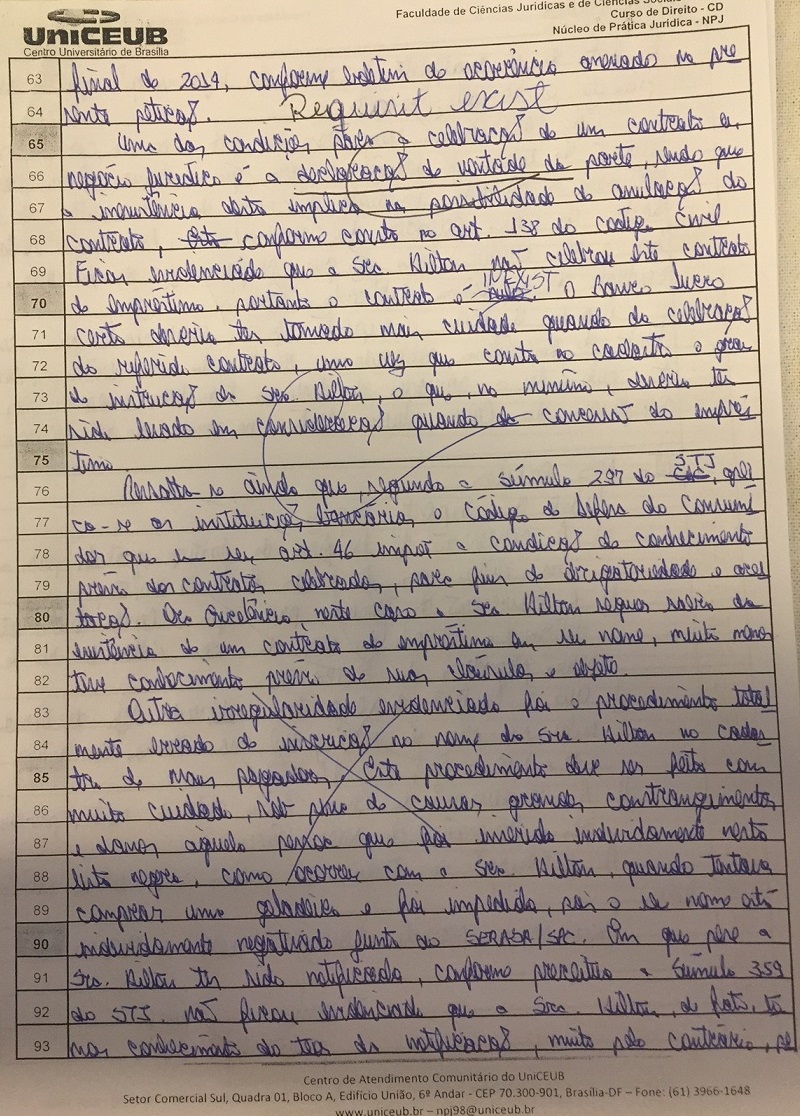 UniCEUB
Centro Universitário de Brasília
Faculdade de Ciências Jurídicas e de Ciências Sociais
Curso de Direito - CD
Núcleo de Prática Jurídica - NPJ
63 final de 2014, conforme boletim de ocorrência anexado na pre
64 sente petição. Requisit exist
65 Uma das condições para a celebração de um contrato e
66 negócio jurídico é a declaração de vontade da parte, sendo que
67 a inexistência desta implica na possibilidade de anulação do
68 contrato, conforme consta no art. 138 do código Civil.
69 Ficou evidenciado que a Sra. Hilton não celebrou este contrato
70 de empréstimo, portanto o contrato é INEXIST O Banco Lucro
71 certo deveria ter tomado mais cuidado quando da celebração
72 do referido contrato, uma vez que consta no cadastro o grau
73 de instrução da Sra. Hilton, o que, no mínimo, deveria ter
74 sido levado em consideração quando da concessão do emprés
75 timo.
76 Ressalta-se ainda que, segundo a súmula 297 do STJ, apli
77 ca-se as instituições bancárias o Código de Defesa do Consumi
78 dor que em seu art. 46 impõe a condição do conhecimento
79 prévio dos contratos celebrados, para fins de obrigatoriedade e
80 Excelência, neste caso a Sra. Hilton sequer sabia da
81 existência de um contrato de empréstimo em seu nome, muito menos
82 teve conhecimento prévio de suas cláusulas e objeto.
83 Outra irregularidade evidenciada foi o procedimento total
84 mente errado de inscrição no nome da Sra. Hilton no cadas
85 tro de maus pagadores. Este procedimento deve ser feito com
86 muito cuidado, sob pena de causar grandes contrangimentos
87 e danos àquela pessoa que foi inserida indevidamente nesta
88 lista negra, como ocorreu com a Sra. Hilton, quando tentava
89 comprar uma geladeira e foi impedida, pois o seu nome está
90 indevidamente negativado junto ao SERASA/SPC. Em que pese a
91 Sra. Hilton ter sido notificada, conforme preceitua a Súmula 359
92 do STJ, não ficou evidenciado que a Sra. Hilton, de fato, to
93 mou conhecimento do teor da notificação, muito pelo contrário, pe
Centro de Atendimento Comunitário do UniCEUB
Setor Comercial Sul, Quadra 01, Bloco A, Edifício União, 6º Andar - CEP 70.300-901, Brasília-DF – Fone: (61) 3966-1648
www.uniceub.br – npj98@uniceub.br